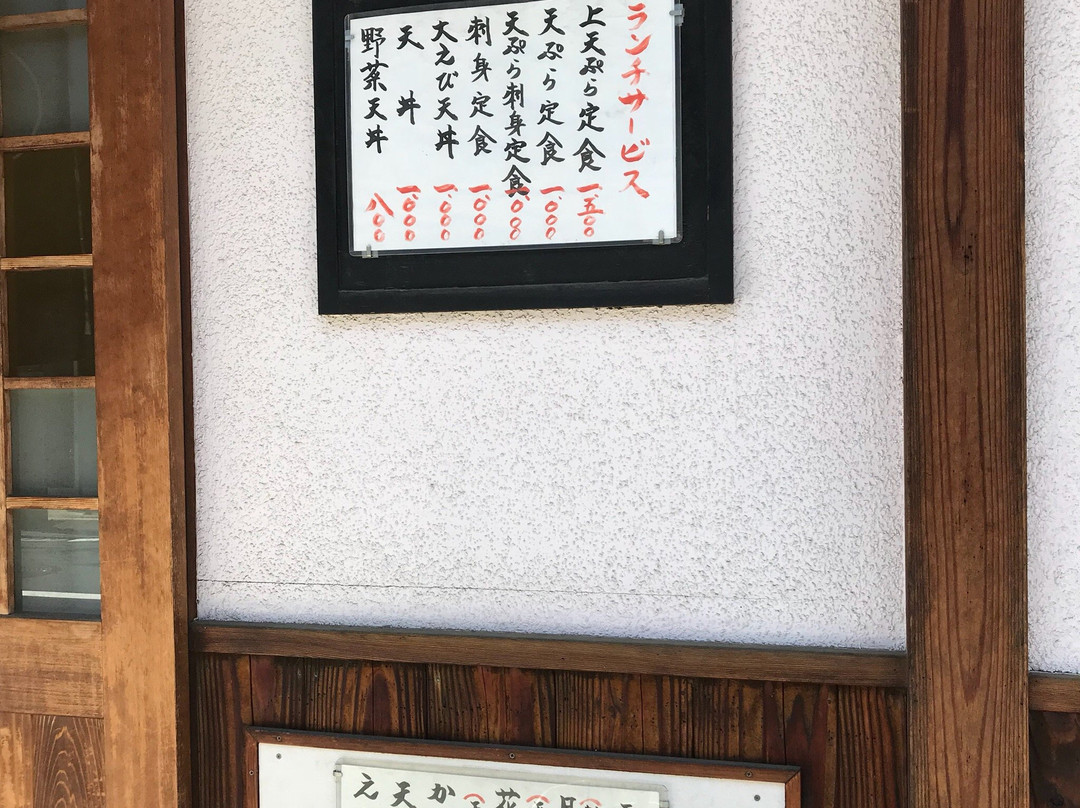 ランチサービス
上天ぷら定食 一、五〇〇
天ぷら定食 一、〇〇〇
天ぷら刺身定食 一、〇〇〇
刺身定食 一、〇〇〇
大えび天丼 一、〇〇〇
天丼 一、〇〇〇
野菜天丼 八〇〇
花
か
天
え